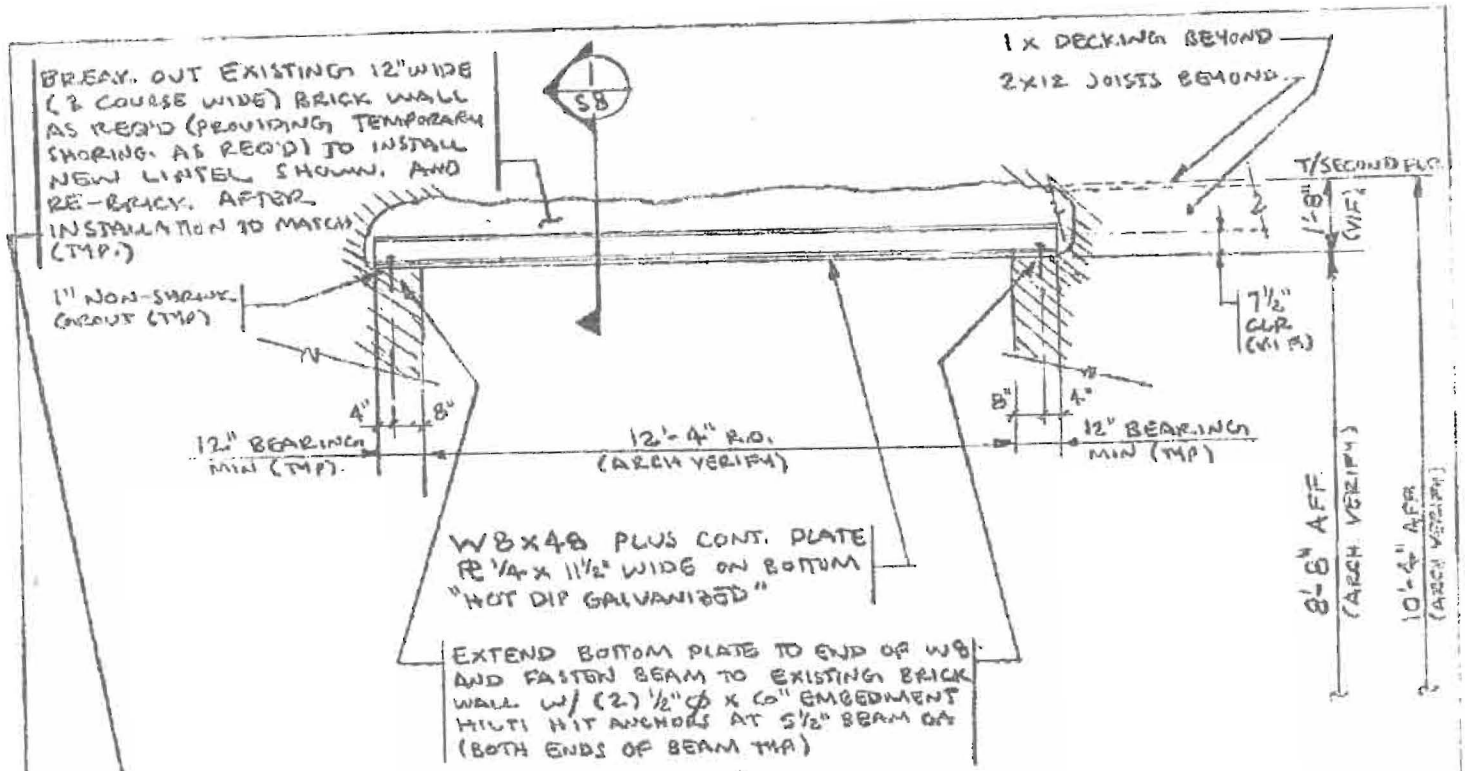 BREAK OUT EXISTING 12" WIDE
(3 COURSE WIDE) BRICK WALL
AS REQ'D (PROVIDING TEMPORARY
SHORING AS REQ'D) TO INSTALL
NEW LINTEL SHOWN. AND
RE-BRICK. AFTER
INSTALLATION TO MATCH
(TYP.)
1
S8
1 X DECKING BEYOND
2X12 JOISTS BEYOND
T/SECOND FLR.
1'-8"
(VIF)
7 1/2"
CLR
(VIF)
1" NON-SHRINK
GROUT (TYP)
4" 8"
8" 4"
12" BEARING
MIN (TYP).
12'-4" R.O.
(ARCH VERIFY)
12" BEARING
MIN (TYP)
8'-8" AFF
(ARCH VERIFY)
10'-4" AFF
(ARCH VERIFY)
W8X48 PLUS CONT. PLATE
PL 1/4 X 11 1/2" WIDE ON BOTTOM
"HOT DIP GALVANIZED"
EXTEND BOTTOM PLATE TO END OF W8
AND FASTEN BEAM TO EXISTING BRICK
WALL W/ (2) 1/2" Ø X 6" EMBEDMENT
HILTI HIT ANCHORS AT 5 1/2" BEAM GA
(BOTH ENDS OF BEAM TYP)